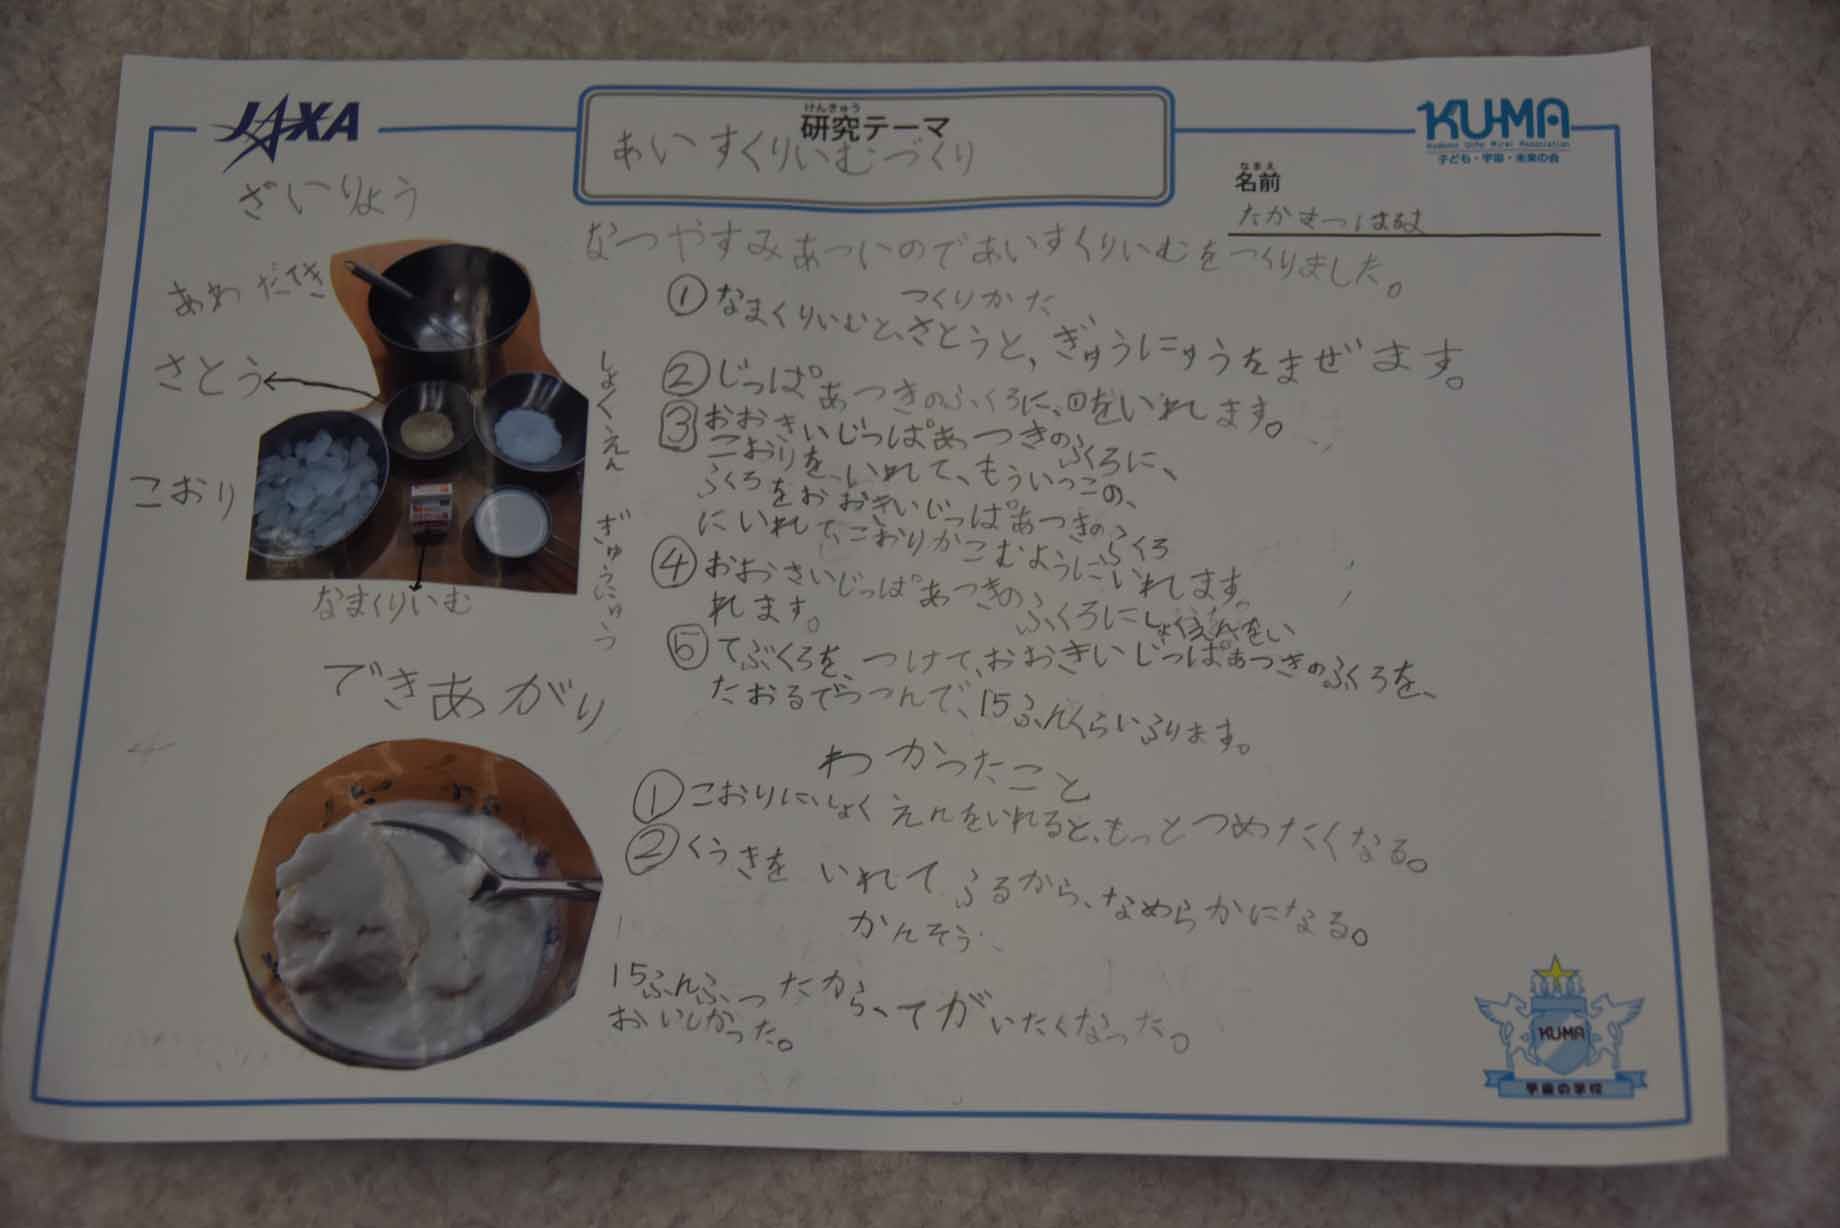 JAXA
けんきゅう
研究テーマ
あいすくりいむづくり
KU-MA
Kodomo Uchu Mirai Association
子ども・宇宙・未来の会
なまえ
名前
ざいりょう
あわだてき
さとう
こおり
なまくりいむ
しょくえん
ぎゅうにゅう
できあがり
なつやすみあついのであいすくりいむをつくりました。
つくりかた
①なまくりいむと、さとうと、ぎゅうにゅうをまぜます。
②じっぱあつきのふくろに、①をいれます。
③おおきいじっぱあつきのふくろに、
こおりを、いれて、もういっこの、
ふくろをおおきいじっぱあつきのふくろ
にいれて、こおりがこむようにいれます。
④おおきいじっぱあつきのふくろにしょくえんをい
れます。
⑤てぶくろを、つけて、おおきいじっぱあつきのふくろを、
たおるでつつんで、15ふんくらいふります。
わかったこと
①こおりに、しょくえんをいれると、もっとつめたくなる。
②くうきをいれてふるから、なめらかになる。
かんそう
15ふんふったから、てがいたくなった。
おいしかった。
KUMA
宇宙の学校